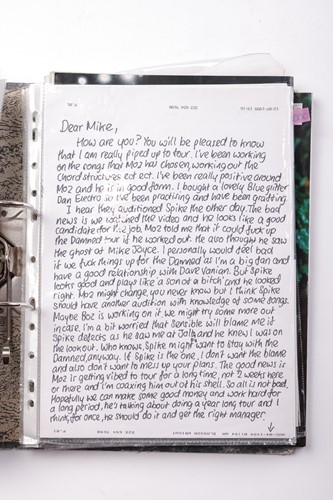 Dear Mike,
How are you? You will be pleased to know
that I am really piped up to tour. I've been working
on the songs that Moz has chosen, working out the
Chord structures ect ect. I've been really positive around
Moz and he is in good form. I bought a lovely Blue glitter
Dan Electro so I've been practicing and have been grafting.
I hear they auditioned Spike the other day. The bad
news is we watched the video and he looks like a good
candidate for the job, Moz told me that it could fuck up
the Damned tour if he worked out. He also though he saw
the ghost of Mike Joyce. I personally would feel bad
if we fuck things up for the Damned as I'm a big fan and
have a good relationship with Dave Vanian. But Spike
looks good and plays like a son of a bitch and he looked
right. Moz might change, you never know but I think Spike
should have another audition with knowledge of some songs.
Maybe Boz is working on it we might try some more out
incase. I'm a bit worried that Sensible will blame me if
Spike defects as he saw me at and he knew I was on
the look out. Who knows, Spike might want to stay with the
Damned, anyway. If Spike is the one, I don't want the blame
and also don't want to mess up your plans. The good news is
Moz is getting vibed to tour for a long time, not 2 weeks here
or there and I'm coaxing him out of his shell. So all is not bad.
Hopefully we can make some good money and work hard for
a long period, he's talking about doing a year long tour and I
think, for once, he should do it and get the right manager.